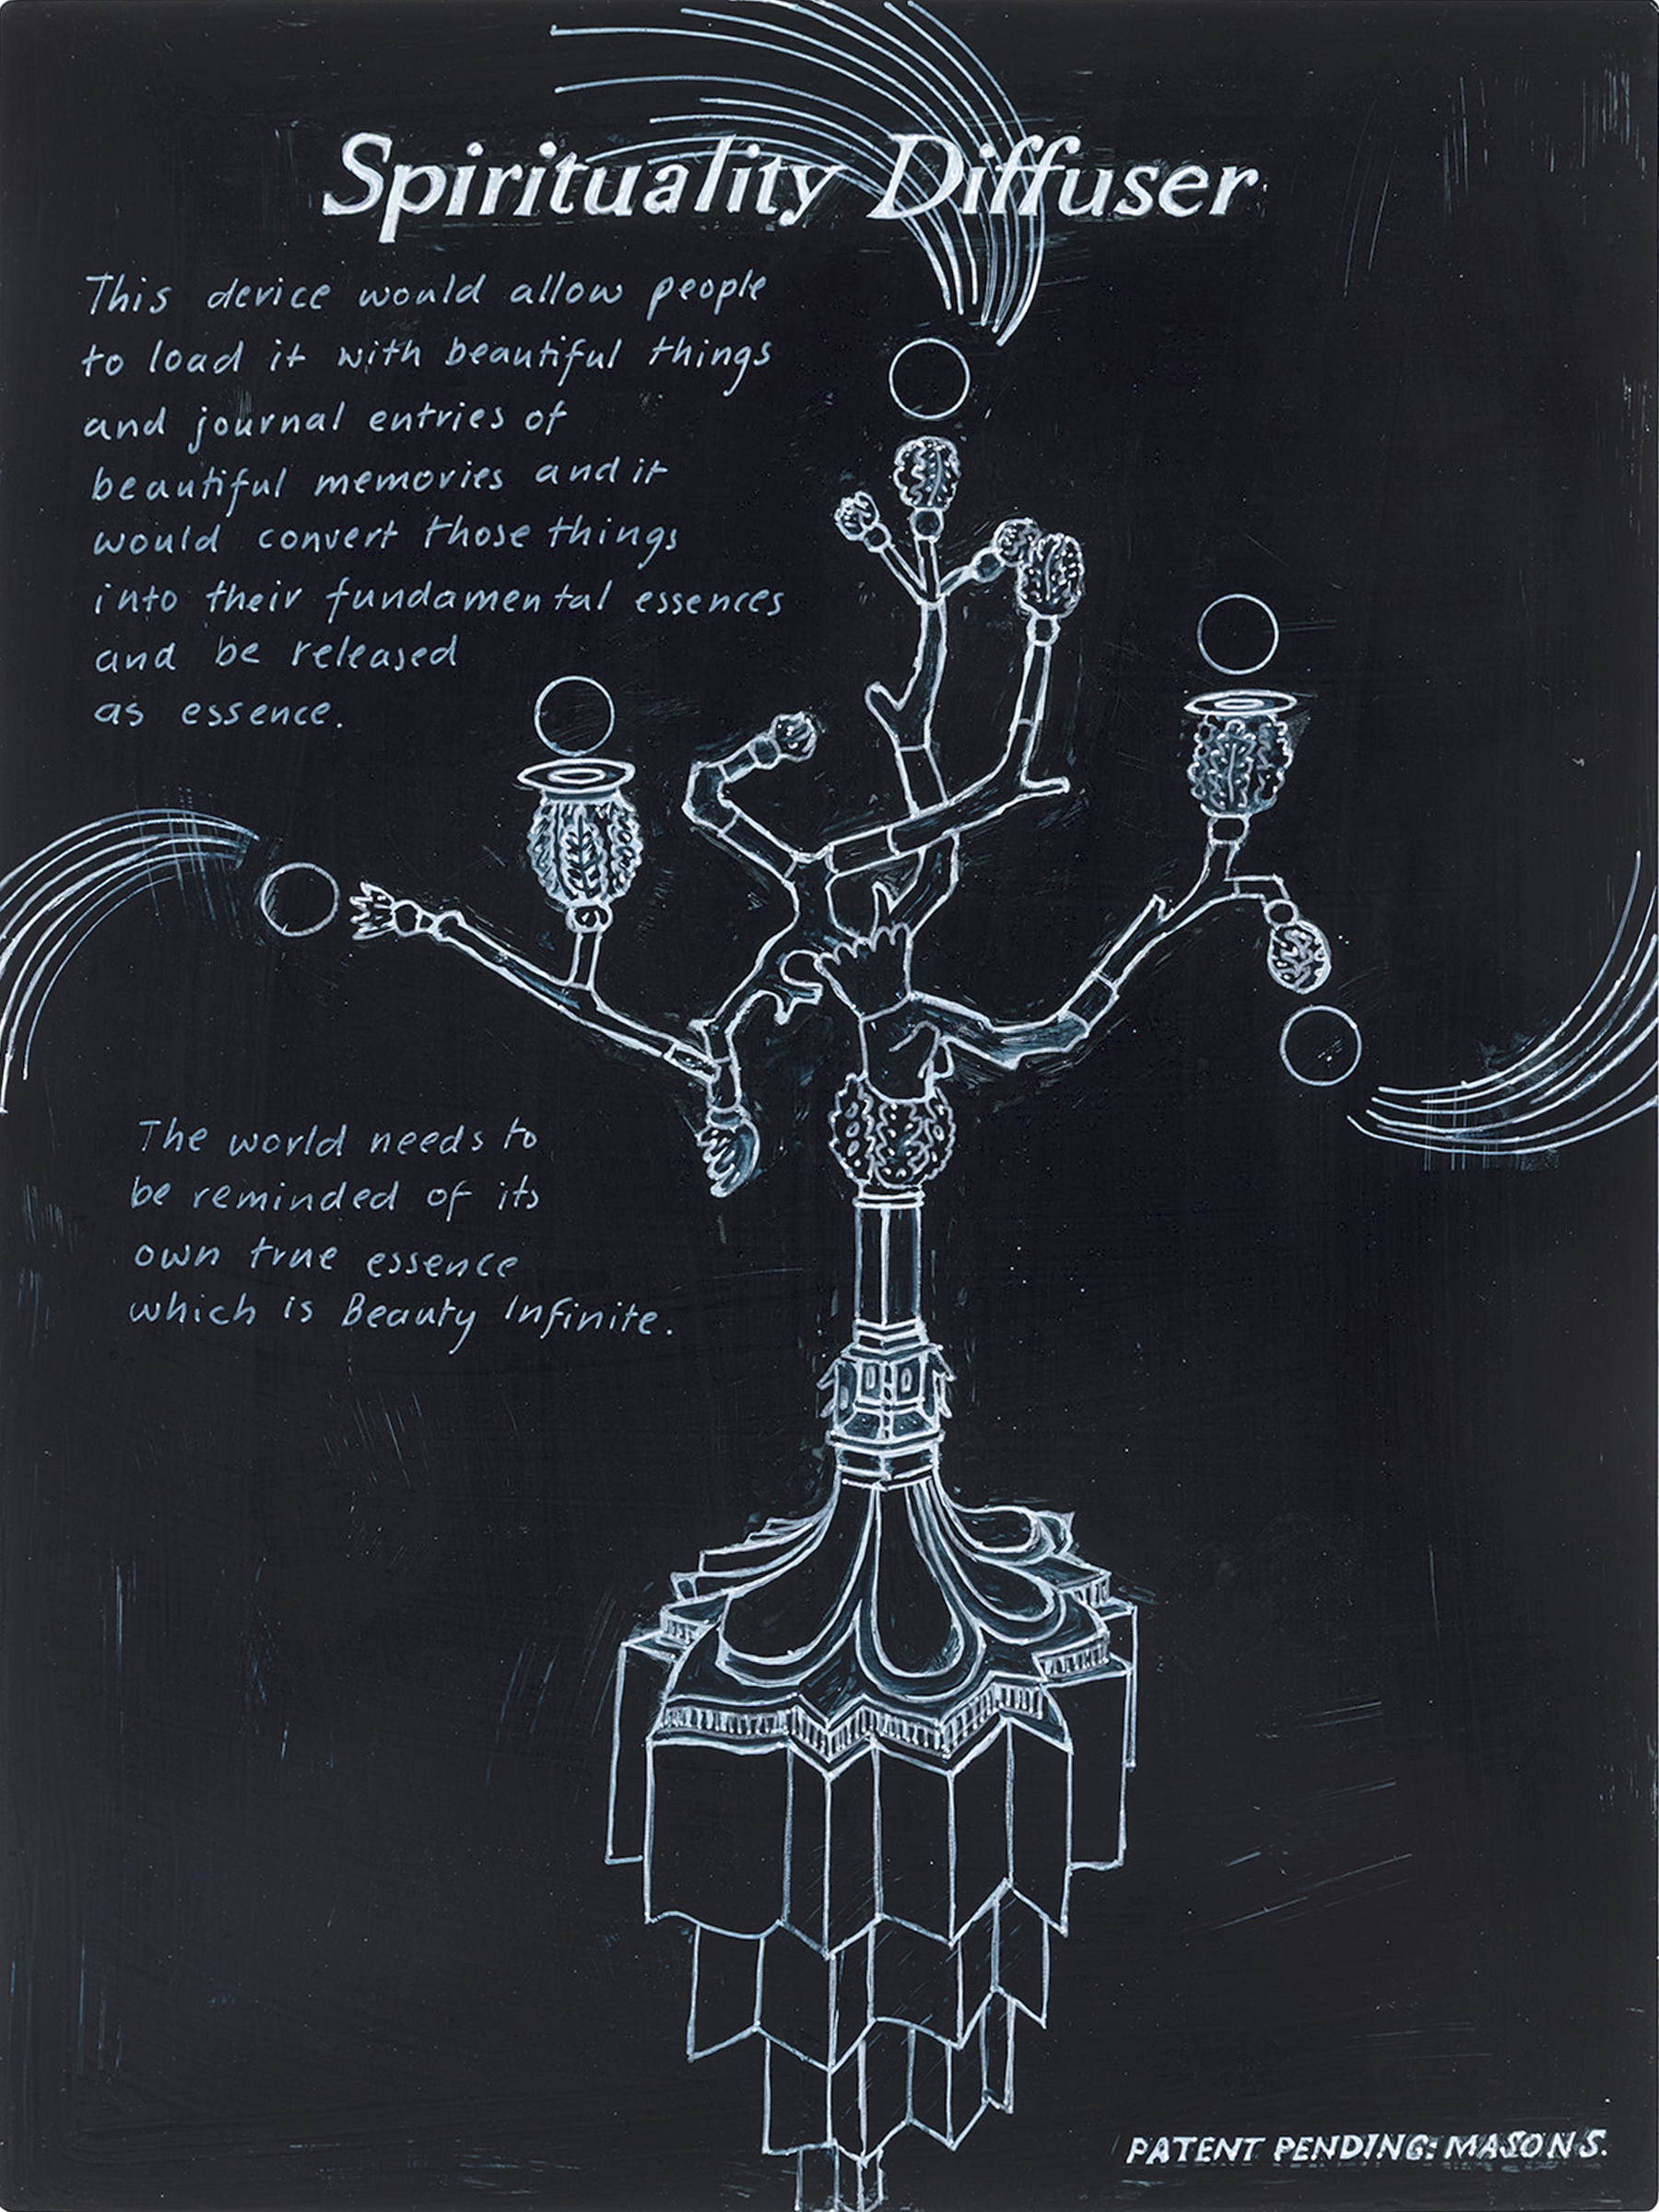 Spirituality Diffuser
This device would allow people
to load it with beautiful things
and journal entries of
beautiful memories and it
would convert those things
into their fundamental essences
and be released
as essence.
The world needs to
be reminded of its
own true essence
which is Beauty Infinite.
PATENT PENDING: MASON S.